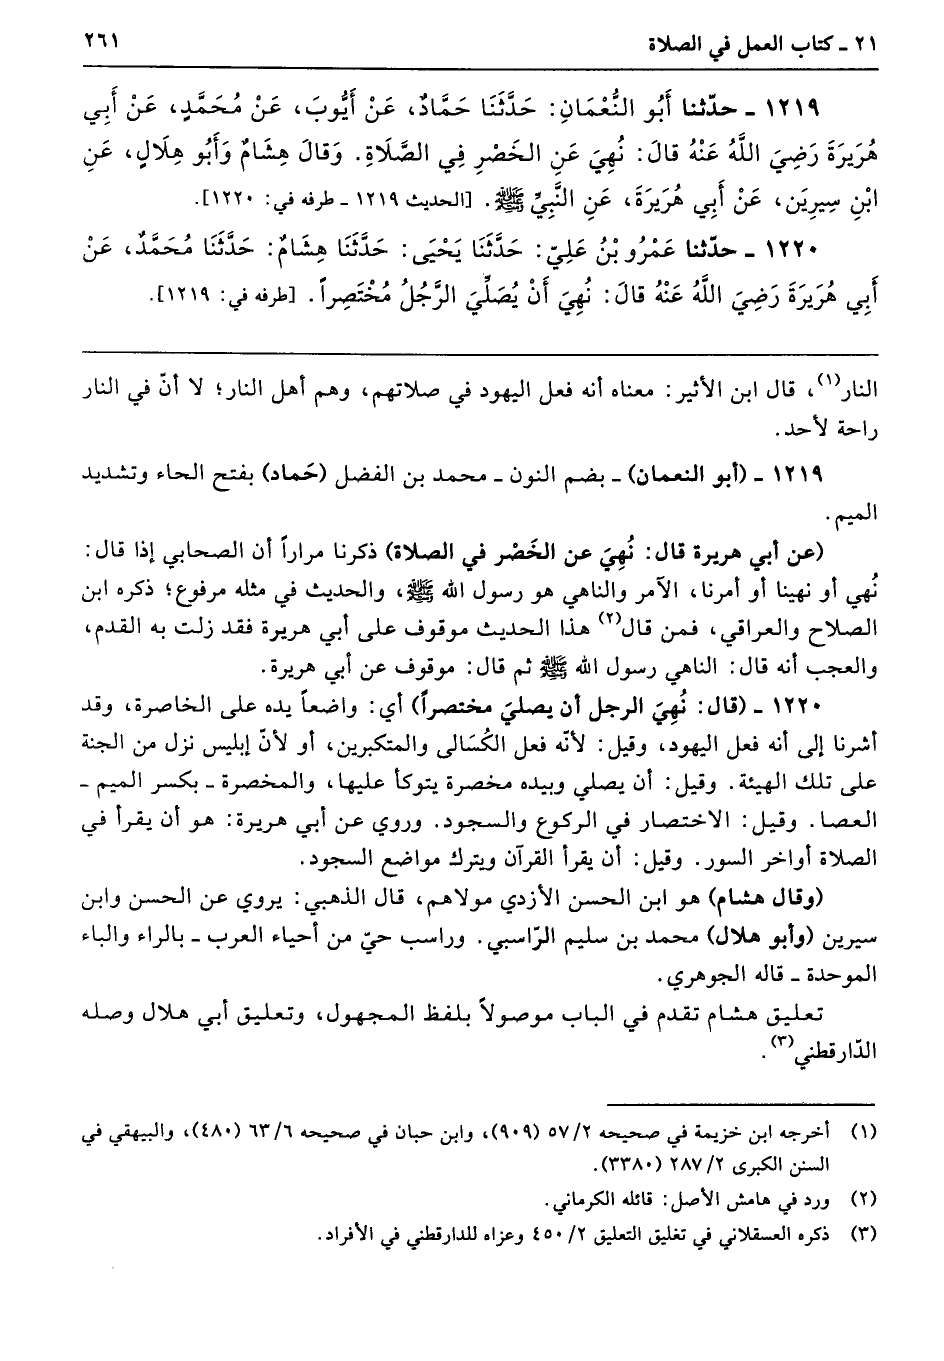 ٢١ ـ كتاب العمل في الصلاة
٢٦١
١٢١٩ ـ حدّثنا أَبُو النُّعْمَانِ: حَدَّثَنَا حَمَّادٌ، عَنْ أَيُّوبَ، عَنْ مُحَمَّدٍ، عَنْ أَبِي
هُرَيرَةَ رَضِيَ اللَّهُ عَنْهُ قالَ: نُهِيَ عَنِ الخَصْرِ فِي الصَّلَاةِ. وَقالَ هِشَامٌ وَأَبُو هِلَالٍ، عَنِ
ابْنِ سِيرِينَ، عَنْ أَبِي هُرَيرَةَ، عَنِ النَّبِيِّ ﷺ. [الحديث ١٢١٩ ـ طرفه في: ١٢٢٠].
١٢٢٠ ـ حدّثنا عَمْرُو بْنُ عَلِيّ: حَدَّثَنَا يَحْيَى: حَدَّثَنَا هِشَامٌ: حَدَّثَنَا مُحَمَّدٌ، عَنْ
أَبِي هُرَيرَةَ رَضِيَ اللَّهُ عَنْهُ قالَ: نُهِيَ أَنْ يُصَلِّيَ الرَّجُلُ مُخْتَصِراً. [طرفه في: ١٢١٩].
النار(١)، قال ابن الأثير: معناه أنه فعل اليهود في صلاتهم، وهم أهل النار؛ لا أنّ في النار
راحة لأحد.
١٢١٩ ـ (أبو النعمان) ـ بضم النون ـ محمد بن الفضل (حَماد) بفتح الحاء وتشديد
الميم.
(عن أبي هريرة قال: نُهِيَ عن الخَصْر في الصلاة) ذكرنا مراراً أن الصحابي إذا قال:
نُهي أو نهينا أو أمرنا، الآمر والناهي هو رسول الله ﷺ، والحديث في مثله مرفوع؛ ذكره ابن
الصلاح والعراقي، فمن قال(٢) هذا الحديث موقوف على أبي هريرة فقد زلت به القدم،
والعجب أنه قال: الناهي رسول الله ﷺ ثم قال: موقوف عن أبي هريرة.
١٢٢٠ ـ (قال: نُهِيَ الرجل أن يصليَ مختصراً) أي: واضعاً يده على الخاصرة، وقد
أشرنا إلى أنه فعل اليهود، وقيل: لأنّه فعل الكُسَالى والمتكبرين، أو لأنّ إبليس نزل من الجنة
على تلك الهيئة. وقيل: أن يصلي وبيده مخصرة يتوكأ عليها، والمخصرة ـ بكسر الميم ـ
العصا. وقيل: الاختصار في الركوع والسجود. وروي عن أبي هريرة: هو أن يقرأ في
الصلاة أواخر السور. وقيل: أن يقرأ القرآن ويترك مواضع السجود.
(وقال هشام) هو ابن الحسن الأزدي مولاهم، قال الذهبي: يروي عن الحسن وابن
سيرين (وأبو هلال) محمد بن سليم الرّاسبي. وراسب حيّ من أحياء العرب ـ بالراء والباء
الموحدة ـ قاله الجوهري.
تعليق هشام تقدم في الباب موصولاً بلفظ المجهول، وتعليق أبي هلال وصله
الدّارقطني(٣).
(١) أخرجه ابن خزيمة في صحيحه ٥٧/٢ (٩٠٩)، وابن حبان في صحيحه ٦٣/٦ (٤٨٠)، والبيهقي في
السنن الكبرى ٢٨٧/٢ (٣٣٨٠).
(٢) ورد في هامش الأصل: قائله الكرماني.
(٣) ذكره العسقلاني في تغليق التعليق ٤٥٠/٢ وعزاه للدارقطني في الأفراد.